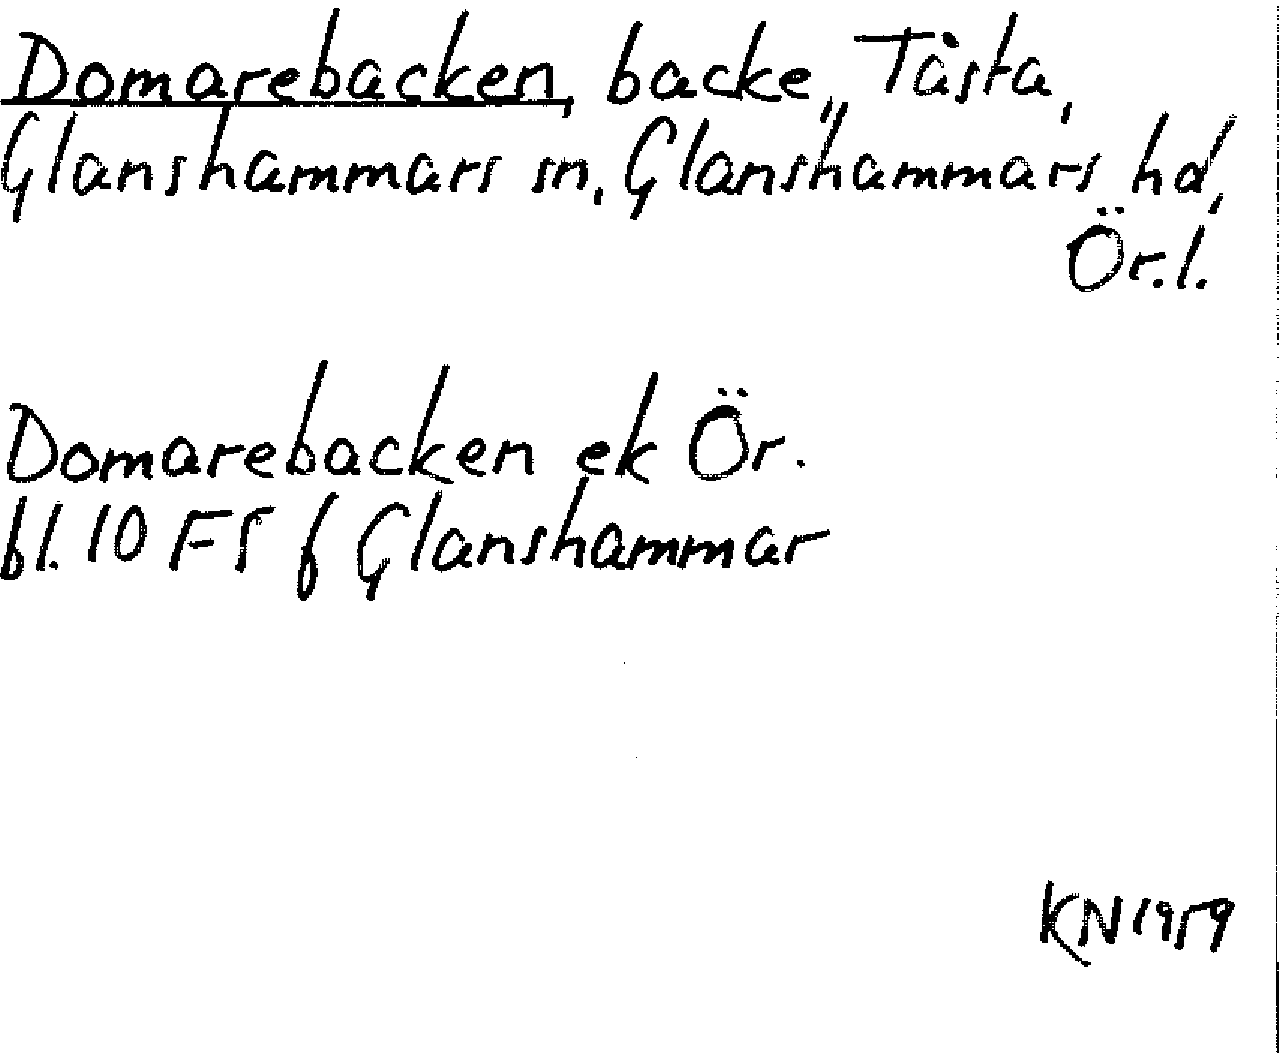 Domarebacken, backe, Tåsta,
Glanshammars sn, Glanshammars hd,
Ör.l.
Domarebacken ek Ör.
bl. 10 FS f Glanshammar
KN 1959